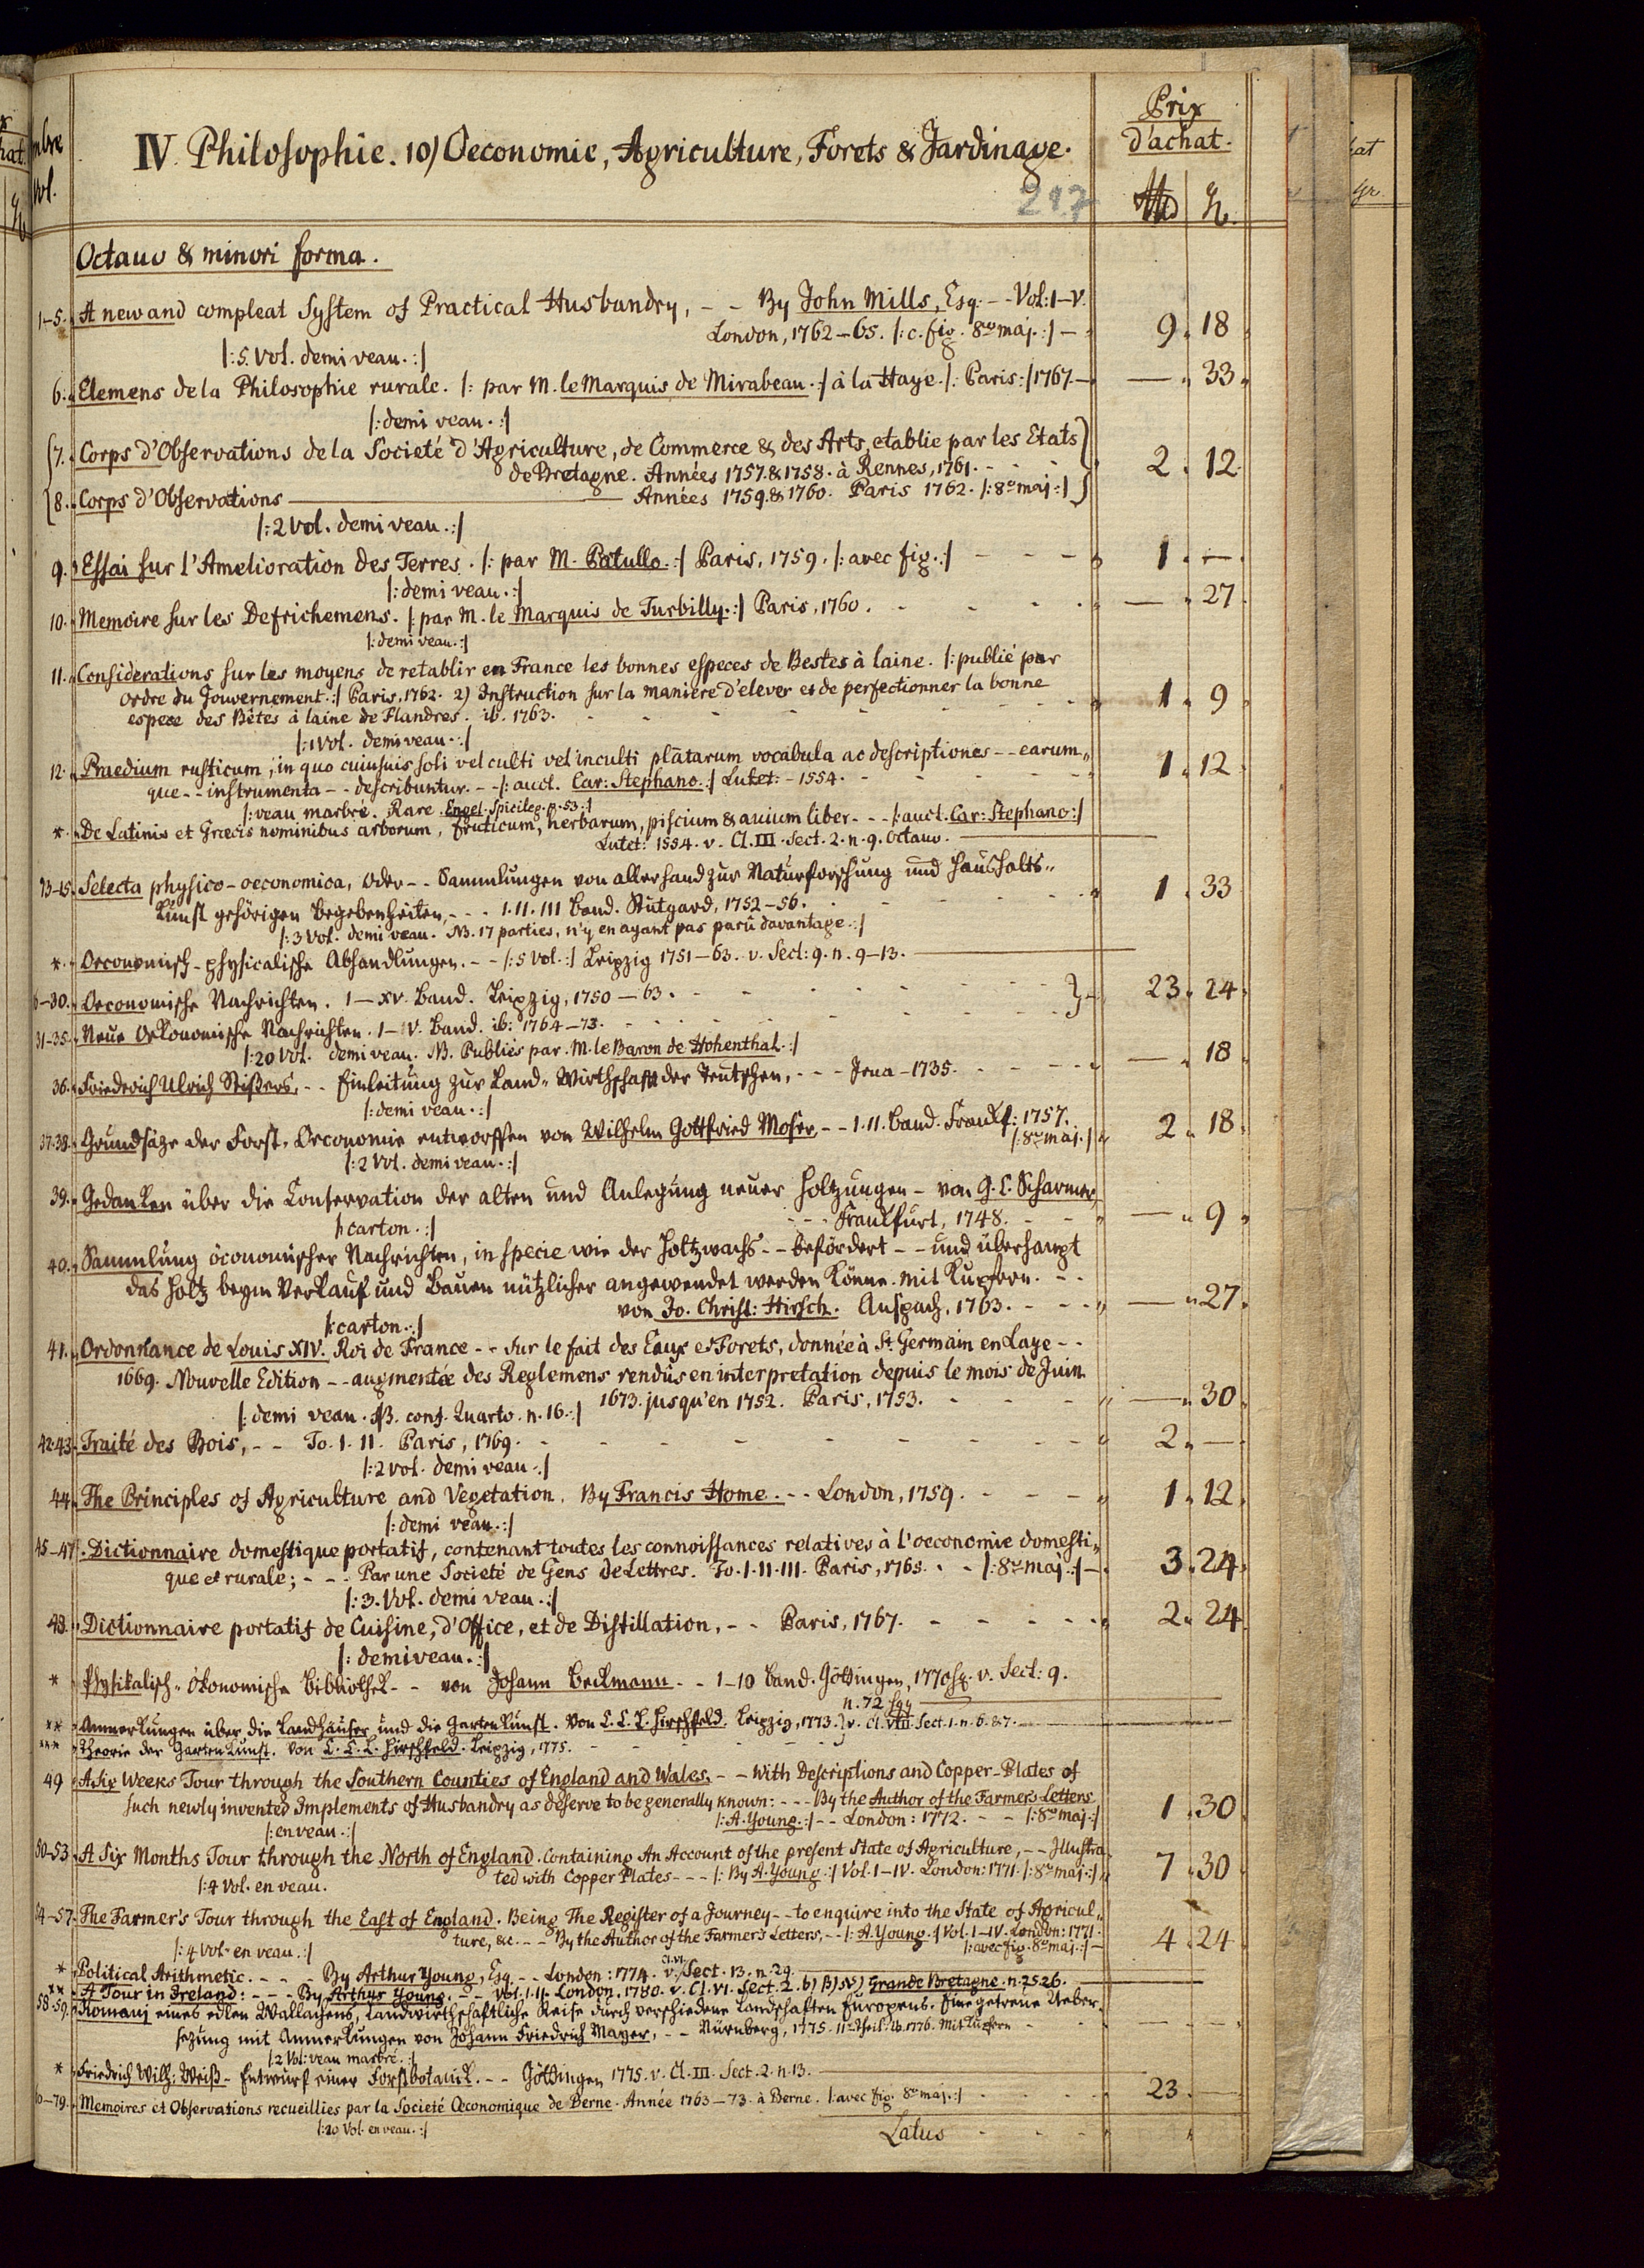 mbre
Vol.
IV. Philosophie. 10) Oeconomie, Agriculture, Forets & Jardinage.
217
Prix
d'achat.
Octavo & minori forma.
1-5. A new and compleat System of Practical Husbandry, - - By John Mills, Esq. - - Vol: I-V.
London, 1762-65. /: c. fig. 8vo maj. :/ - 9. 18
/: 5. Vol. demi veau. :/
6. Elemens de la Philosophie rurale. /: par M. le Marquis de Mirabeau. :/ à la Haye. /: Paris :/ 1767. - — 33.
/: demi veau. :/
7. Corps d'Observations de la Societé d'Agriculture, de Commerce & des Arts, etablie par les Etats
de Bretagne. Années 1757. & 1758. à Rennes, 1761. - - - 2. 12.
8. Corps d'Observations ——— Années 1759. & 1760. Paris 1762. /: 8o maj :/
/: 2 Vol. demi veau. :/
9. Essai sur l'Amelioration des Terres. /: par M. Patullo. :/ Paris, 1759. /: avec fig. :/ - - - 1. —
/: demi veau. :/
10. Memoire sur les Defrichemens. /: par M. le Marquis de Turbilly. :/ Paris, 1760. - - - — 27.
/: demi veau. :/
11. Considerations sur les moyens de retablir en France les bonnes especes de Bestes à laine. /: publié par
ordre du Gouvernement. :/ Paris, 1762. 2) Instruction sur la maniere d'elever et de perfectionner la bonne
espece des Bêtes à laine de Flandres. ib. 1763. - - - 1. 9
/: 1 Vol. demi veau. :/
12. Praedium rusticum, in quo cuiusuis soli vel culti vel inculti platarum vocabula ac descriptiones - - earum„
que - - instrumenta - - describuntur. - - /: auct. Car: Stephano. :/ Lutet: - 1554. - - - 1. 12
/: veau marbré. Rare. Engel. Spicileg. p. 53. :/
*. De Latinis et Græcis nominibus arborum, fruticum, herbarum, piscium & auium liber - - - /: auct. Car: Stephano :/
Lutet: 1554. v. Cl. III. Sect. 2. n. 9. Octavo. ———
13-15. Selecta physico-oeconomica, oder - - Sammlungen von allerhand zur Naturforschung und Haushalts„
Kunst gehörigen Begebenheiten, - - - I. II. III Band. Stutgard, 1752-56. - - - 1. 33
/: 3 Vol. demi veau. NB. 17 parties, n'y en ayant pas paru davantage. :/
*. Oeconomisch-physicalische Abhandlungen. - - /: 5 Vol. :/ Leipzig 1751-63. v. Sect: 9. n. 9-13. ———
6-30. Oeconomische Nachrichten. I-XV. Band. Leipzig, 1750-63. - - - 23. 24.
31-35. Neue Oekonomische Nachrichten. I-V. Band. ib: 1764-73. - - -
/: 20 Vol. demi veau. NB. Publiés par M. le Baron de Hohenthal. :/
36. Friederich Ulrich Stißers, - - Einleitung zur Land-Wirthschafft der Teutschen, - - - Jena - 1735. - - - — 18
/: demi veau. :/
37.38. Grundsäze der Forst-Oeconomie entworffen von Wilhelm Gottfried Moser, - - I. II. Band. Franckf: 1757.
/: 8vo maj. :/ 2. 18.
/: 2 Vol. demi veau. :/
39. Gedanken über die Conservation der alten und Anlegung neuer Holtzungen - von G. C. Scharmer,
- - - Franckfurt, 1748. - - — 9
/: carton. :/
40. Sammlung öconomischer Nachrichten, in specie wie der Holtzwachs - - befördert - - und überhaupt
das Holtz beym Verkauf und Bauen nützlicher angewendet werden könne. mit Kupfern. - -
von Jo. Christ: Hirsch. Anspach, 1763. - - - — 27.
/: carton. :/
41. Ordonnance de Louis XIV. Roi de France - - sur le fait des Eaux et Forets, donnée à St. Germain en Laye - -
1669. Nouvelle Edition - - augmentée des Reglemens rendus en interpretation depuis le mois de Juin.
1673. jusqu'en 1752. Paris, 1753. - - - — 30.
/: demi veau. NB. conf. Quarto. n. 16. :/
42.43. Traité des Bois, - - To. I. II. Paris, 1769. - - - 2. —
/: 2 vol. demi veau. :/
44. The Principles of Agriculture and Vegetation. By Francis Home. - - London, 1759. - - - 1. 12.
/: demi veau. :/
45-47. Dictionnaire domestique portatif, contenant toutes les connoissances relatives à l'oeconomie domesti„
que et rurale; - - - Par une Societé de Gens de Lettres. To. I. II. III. Paris, 1765. - - /: 8vo maj. :/ - 3. 24.
/: 3. Vol. demi veau. :/
48. Dictionnaire portatif de Cuisine, d'Office, et de Distillation, - - Paris, 1767. - - - 2. 24
/: demi veau. :/
* Physikalisch-ökonomische Bibliothek - - von Johann Beckmann - - 1-10 Band. Göttingen, 1770 sq. v. Sect: 9.
n. 72 sqq ———
** Anmerkungen über die Landhäuser und die Gartenkunst. Von C. C. L. Hirschfeld. Leipzig, 1773. v. Cl. VIII. Sect. 1. n. 6. & 7. ———
*** Theorie der Gartenkunst. Von C. C. L. Hirschfeld. Leipzig, 1775. - - -
49 A Six Weeks Tour through the Southern Counties of England and Wales. - - With Descriptions and Copper-Plates of
such newly invented Implements of Husbandry as deserve to be generally known: - - - By the Author of the Farmer's Letters
/: A. Young. :/ - - London: 1772. - - /: 8vo maj. :/ 1. 30
/: en veau. :/
50-53 A Six Months Tour through the North of England. Containing An Account of the present State of Agriculture, - - Illustra„
ted with Copper Plates - - - /: By A. Young. :/ Vol. I-IV. London: 1771. /: 8vo maj. :/ 7. 30
/: 4 Vol. en veau.
54-57. The Farmer's Tour through the East of England. Being The Register of a Journey - - to enquire into the State of Agricul„
ture, &c. - - By the Author of the Farmer's Letters, - - /: A. Young. :/ Vol. I-IV. London: 1771.
/: avec fig. 8vo maj. :/ - 4. 24
/: 4 Vol. en veau. :/
* Political Arithmetic. - - - By Arthur Young, Esq. - - London: 1774. v. Cl. VI. Sect. 13. n. 29. ———
** A Tour in Ireland: - - - By Arthur Young. - - Vol. I. II. London, 1780. v. Cl. VI. Sect. 2. b) β) Grande Bretagne. n. 25.26. ———
58.59. Romanj eines edlen Wallachens, Landwirthschaftliche Reise durch verschiedene Landschaften Europens. Eine getreue Ueber„
sezung mit Anmerkungen von Johann Friedrich Mayer, - - Nürnberg, 1775. IIr Theil. ib. 1776. Mit Kupfern - - — —
/: 2 Vol: veau marbré. :/
* Friedrich Wilh: Weiß - Entwurf einer Forstbotanik. - - Göttingen 1775. v. Cl. III. Sect. 2. n. 13. ———
60-79. Memoires et Observations recueillies par la Societé Œconomique de Berne. Année 1763-73. à Berne. /: avec fig. 8vo maj. :/ - - - 23. —
/: 20 Vol. en veau. :/
Latus